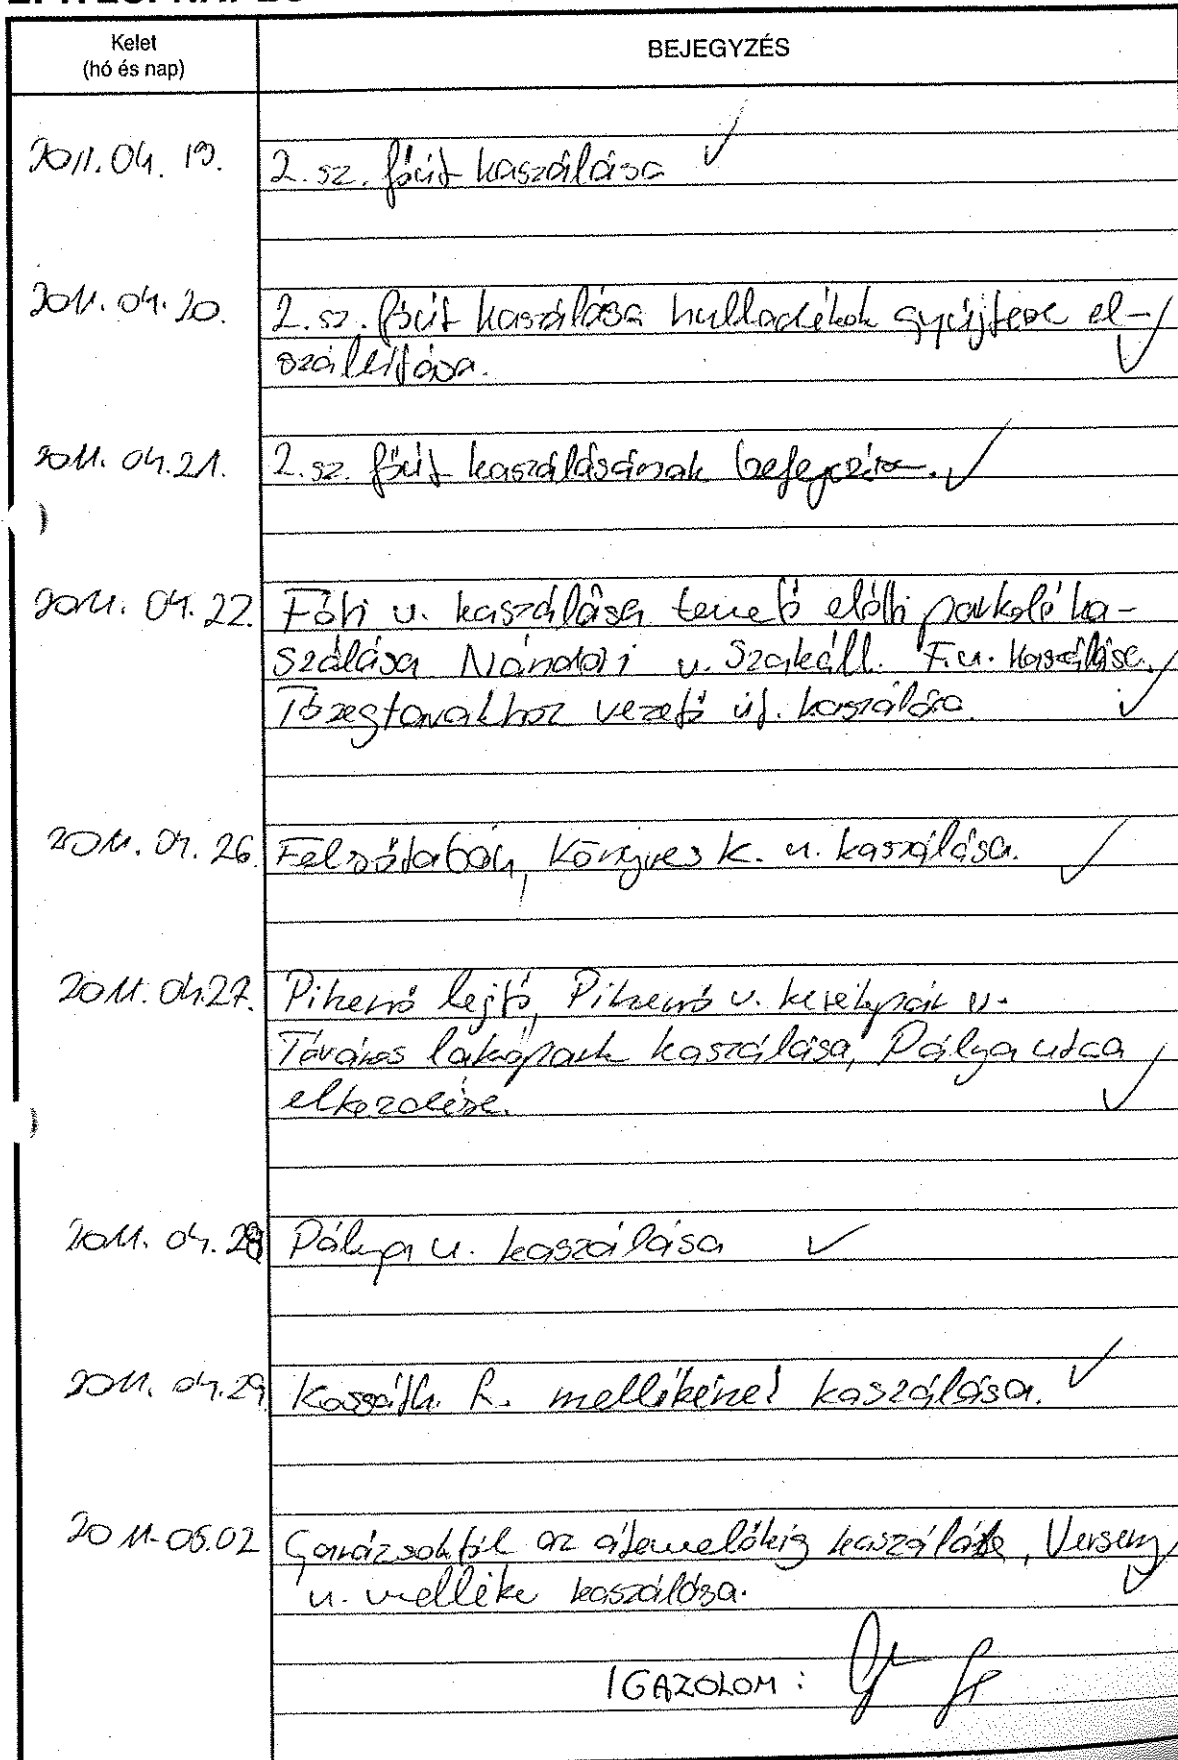 Kelet
(hó és nap)
BEJEGYZÉS
2011.04.19. 2.sz. főút kaszálása
2011.04.20. 2.sz. főút kaszálása hulladékok gyűjtése el-
szállítása.
2011.04.21. 2.sz. főút kaszálásának befejezése.
2011.04.22. Fóti u. kaszálása temető előtti parkoló ka-
szálása Nándori u. Szakáll. F.u. kaszálása.
Tőzegtavakhoz vezető út. kaszálása.
2011.04.26. Felsőtabán, Könyves K. u. kaszálása.
2011.04.27. Pihenő lejtő, Pihenő u. kerékpár u.
Tóváros lakópark kaszálása, Pálya utca
elkezdése.
2011.04.28 Pálya u. kaszálása
2011.04.29 Kossuth L. mellékének kaszálása.
2011.05.02 Garázsoktól az átemelőkig kaszálás, Verseny
u. melléke kaszálása.
IGAZOLOM: